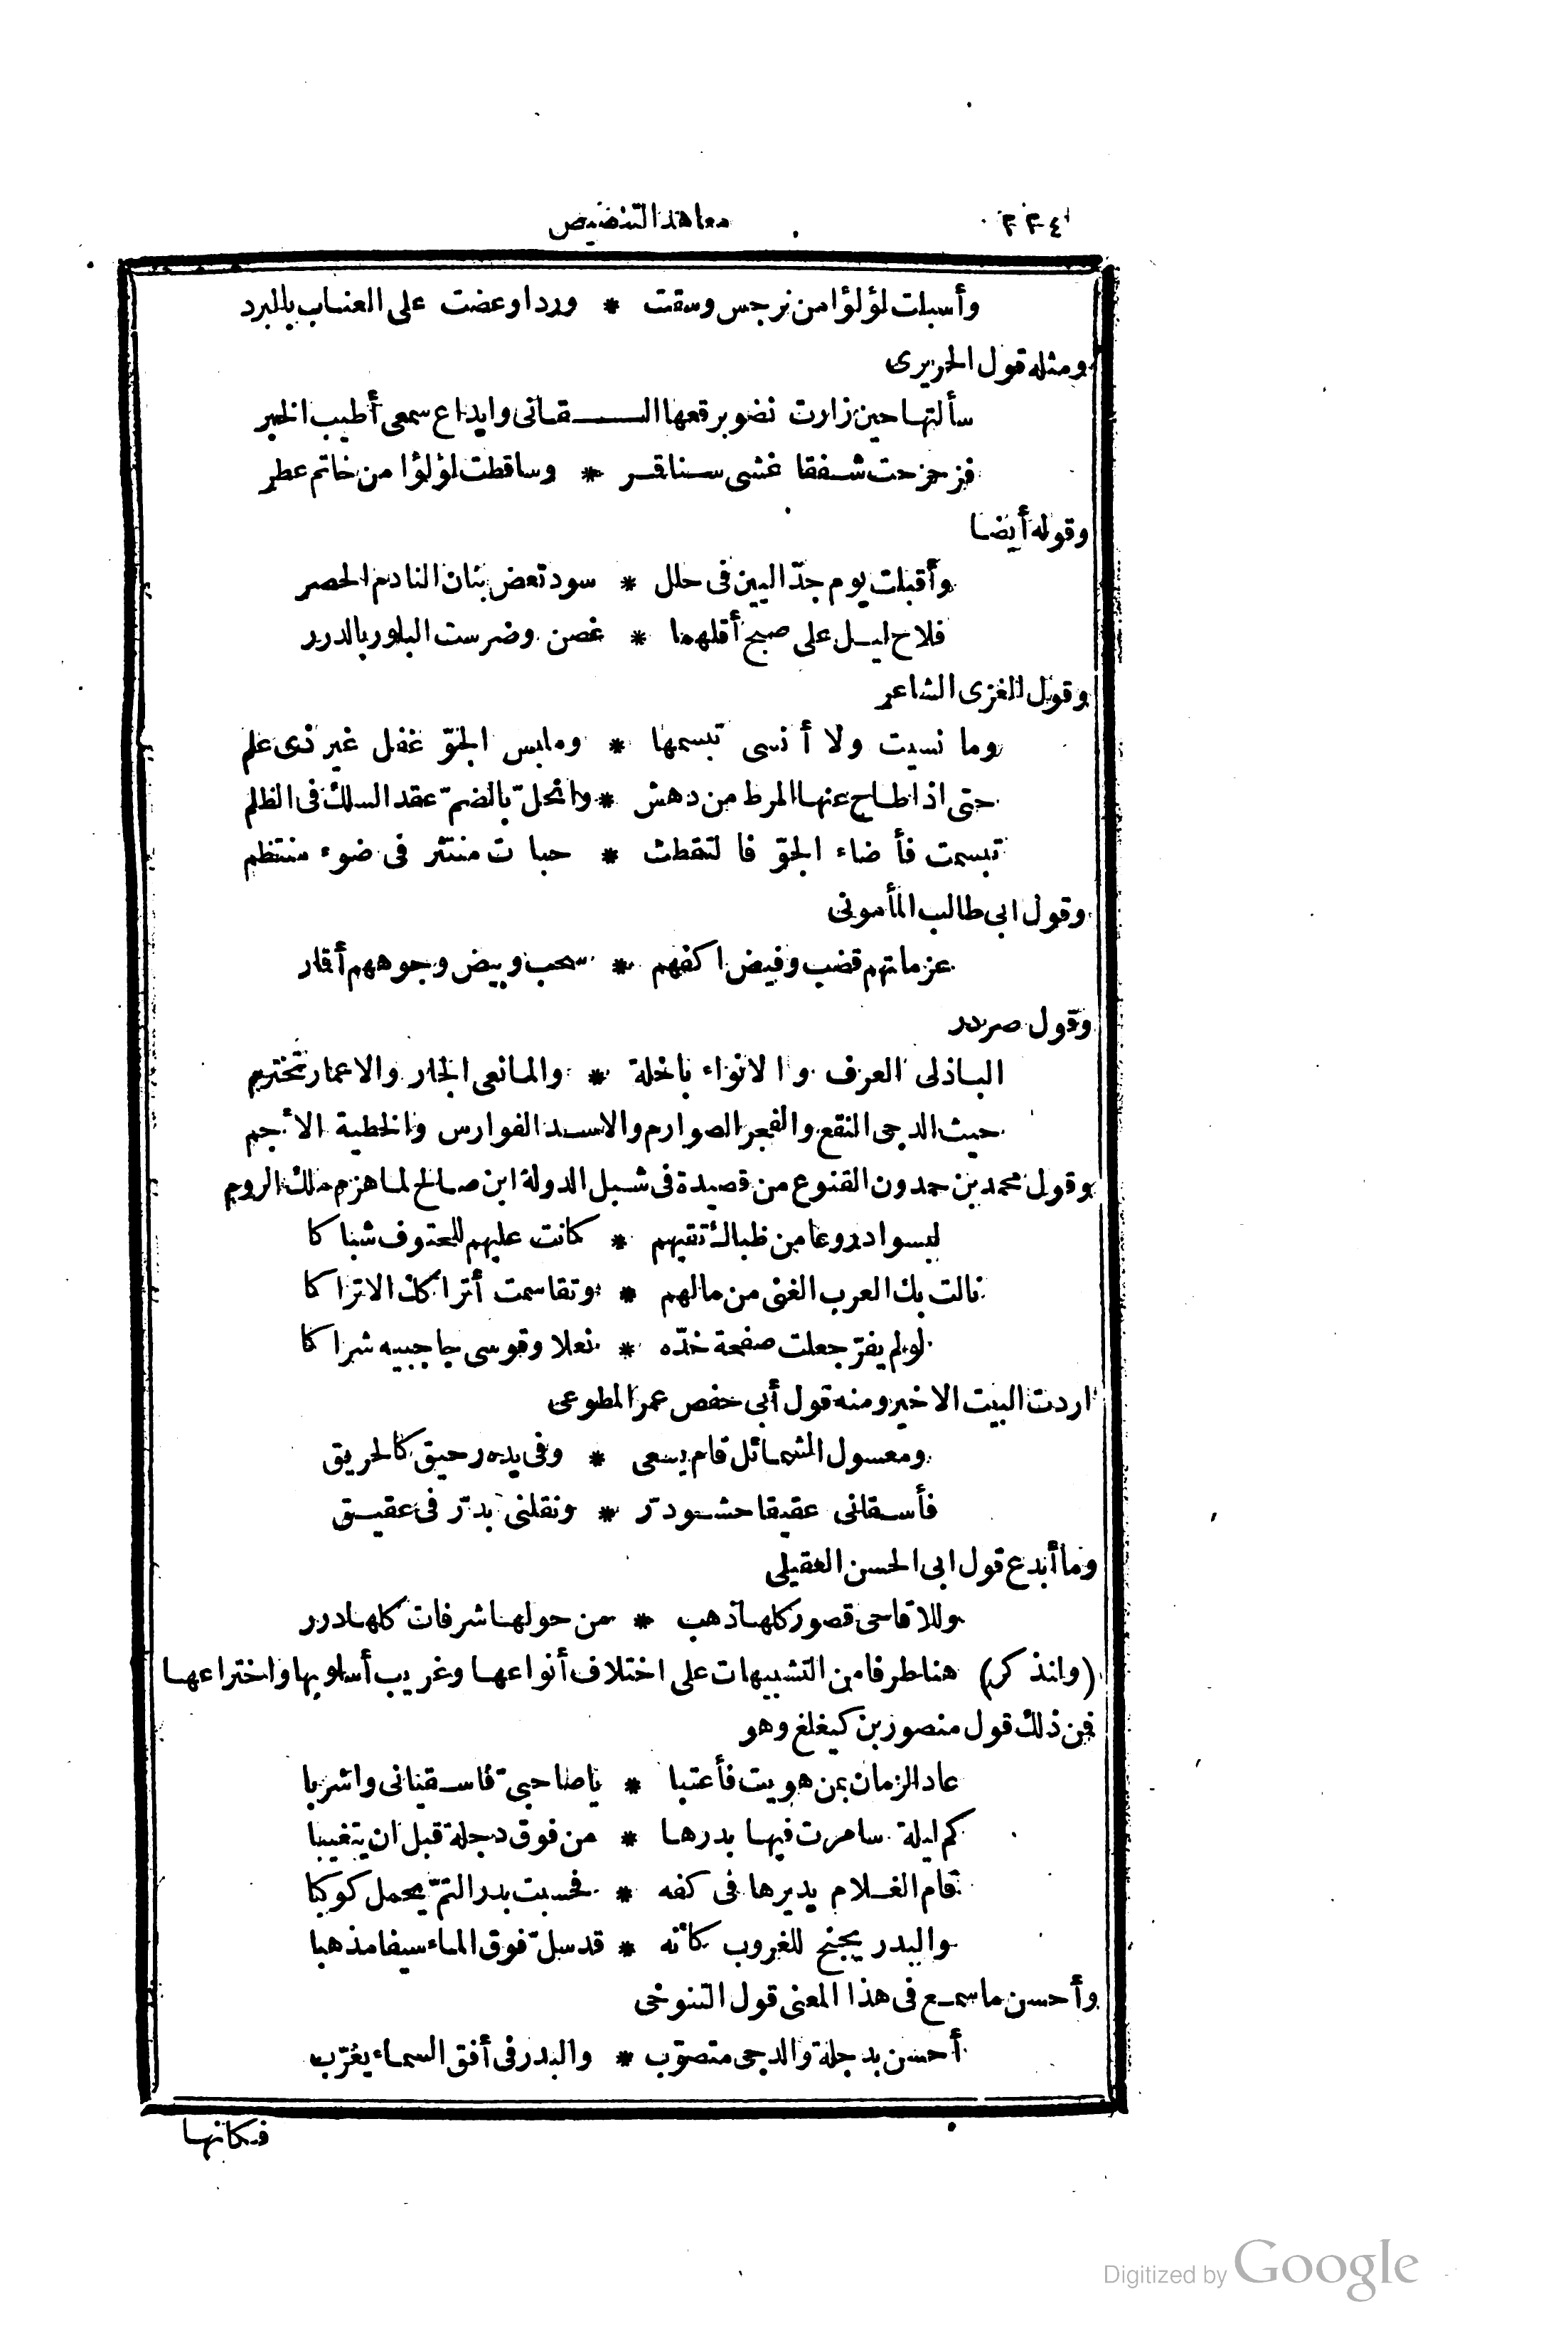 ٢٢٤ معاهد التنصيص
وأسبلت لؤلؤا من نرجس وسقت * وردا وعضت على العناب بالبرد
ومثله قول الحريرى
سألتها حين زارت نضو برقعها الـقانى وايداع سمعى أطيب الخبر
فزحزحت شفقا غشى سنا قمر * وساقطت لؤلؤا من خاتم عطر
وقوله أيضا
وأقبلت يوم جدّ البين فى حلل * سود تعض بنان النادم الحصر
فلاح ليل على صبح أقلهما * غصن وضرست البلور بالدرر
وقول الغزى الشاعر
وما نسيت ولا أنسى تبسمها * وملبس الجوّ غفل غير ذى علم
حتى اذا طاح عنها المرط من دهش * وانحلّ بالضمّ عقد السلك فى الظلم
تبسمت فأضاء الجوّ فالتقطت * حبات منتثر فى ضوء منتظم
وقول ابى طالب المأمونى
عزماتهم قضب وفيض اكفهم * سحب وبيض وجوههم أقمار
وقول صردر
الباذلى العرف والانواء باخلة * والمانعى الجار والاعمار تخترم
حيث الدجى النقع والفجر الصوارم والاسد الفوارس والخطية الأجم
وقول محمد بن حمدون القنوع من قصيدة فى شبل الدولة ابن صالح لما هزم ملك الروم
لبسوا دروعا من ظباك تقيهم * كانت عليهم للحتوف شباكا
نالت بك العرب الغنى من مالهم * وتقاسمت أتراكك الاتراكا
لولم يفرّ جعلت صفحة خدّه * نعلا وقوسى حاجبيه شراكا
اردت البيت الاخير ومنه قول أبى حفص عمر المطوعى
ومعسول الشمائل قام يسعى * وفى يده رحيق كالحريق
فأسقانى عقيقا حشو درّ * ونقلنى بدرّ فى عقيق
وما أبدع قول ابى الحسن العقيلى
وللاقاحى قصور كلها ذهب * من حولها شرفات كلها درر
(ولنذكر) هنا طرفا من التشبيهات على اختلاف أنواعها وغريب أسلوبها واختراعها
فمن ذلك قول منصور بن كيغلغ وهو
عاد الزمان بمن هويت فأعتبا * يا صاحبىّ فاسقيانى واشربا
كم ليلة سامرت فيها بدرها * من فوق دجلة قبل ان يتغيبا
قام الغلام يديرها فى كفه * فحسبت بدر التمّ يحمل كوكبا
والبدر يجنح للغروب كأنه * قد سلّ فوق الماء سيفا مذهبا
وأحسن ما سمع فى هذا المعنى قول التنوخى
أحسن بدجلة والدجى متصوّب * والبدر فى أفق السماء يغرّب
فكانها
Digitized by Google